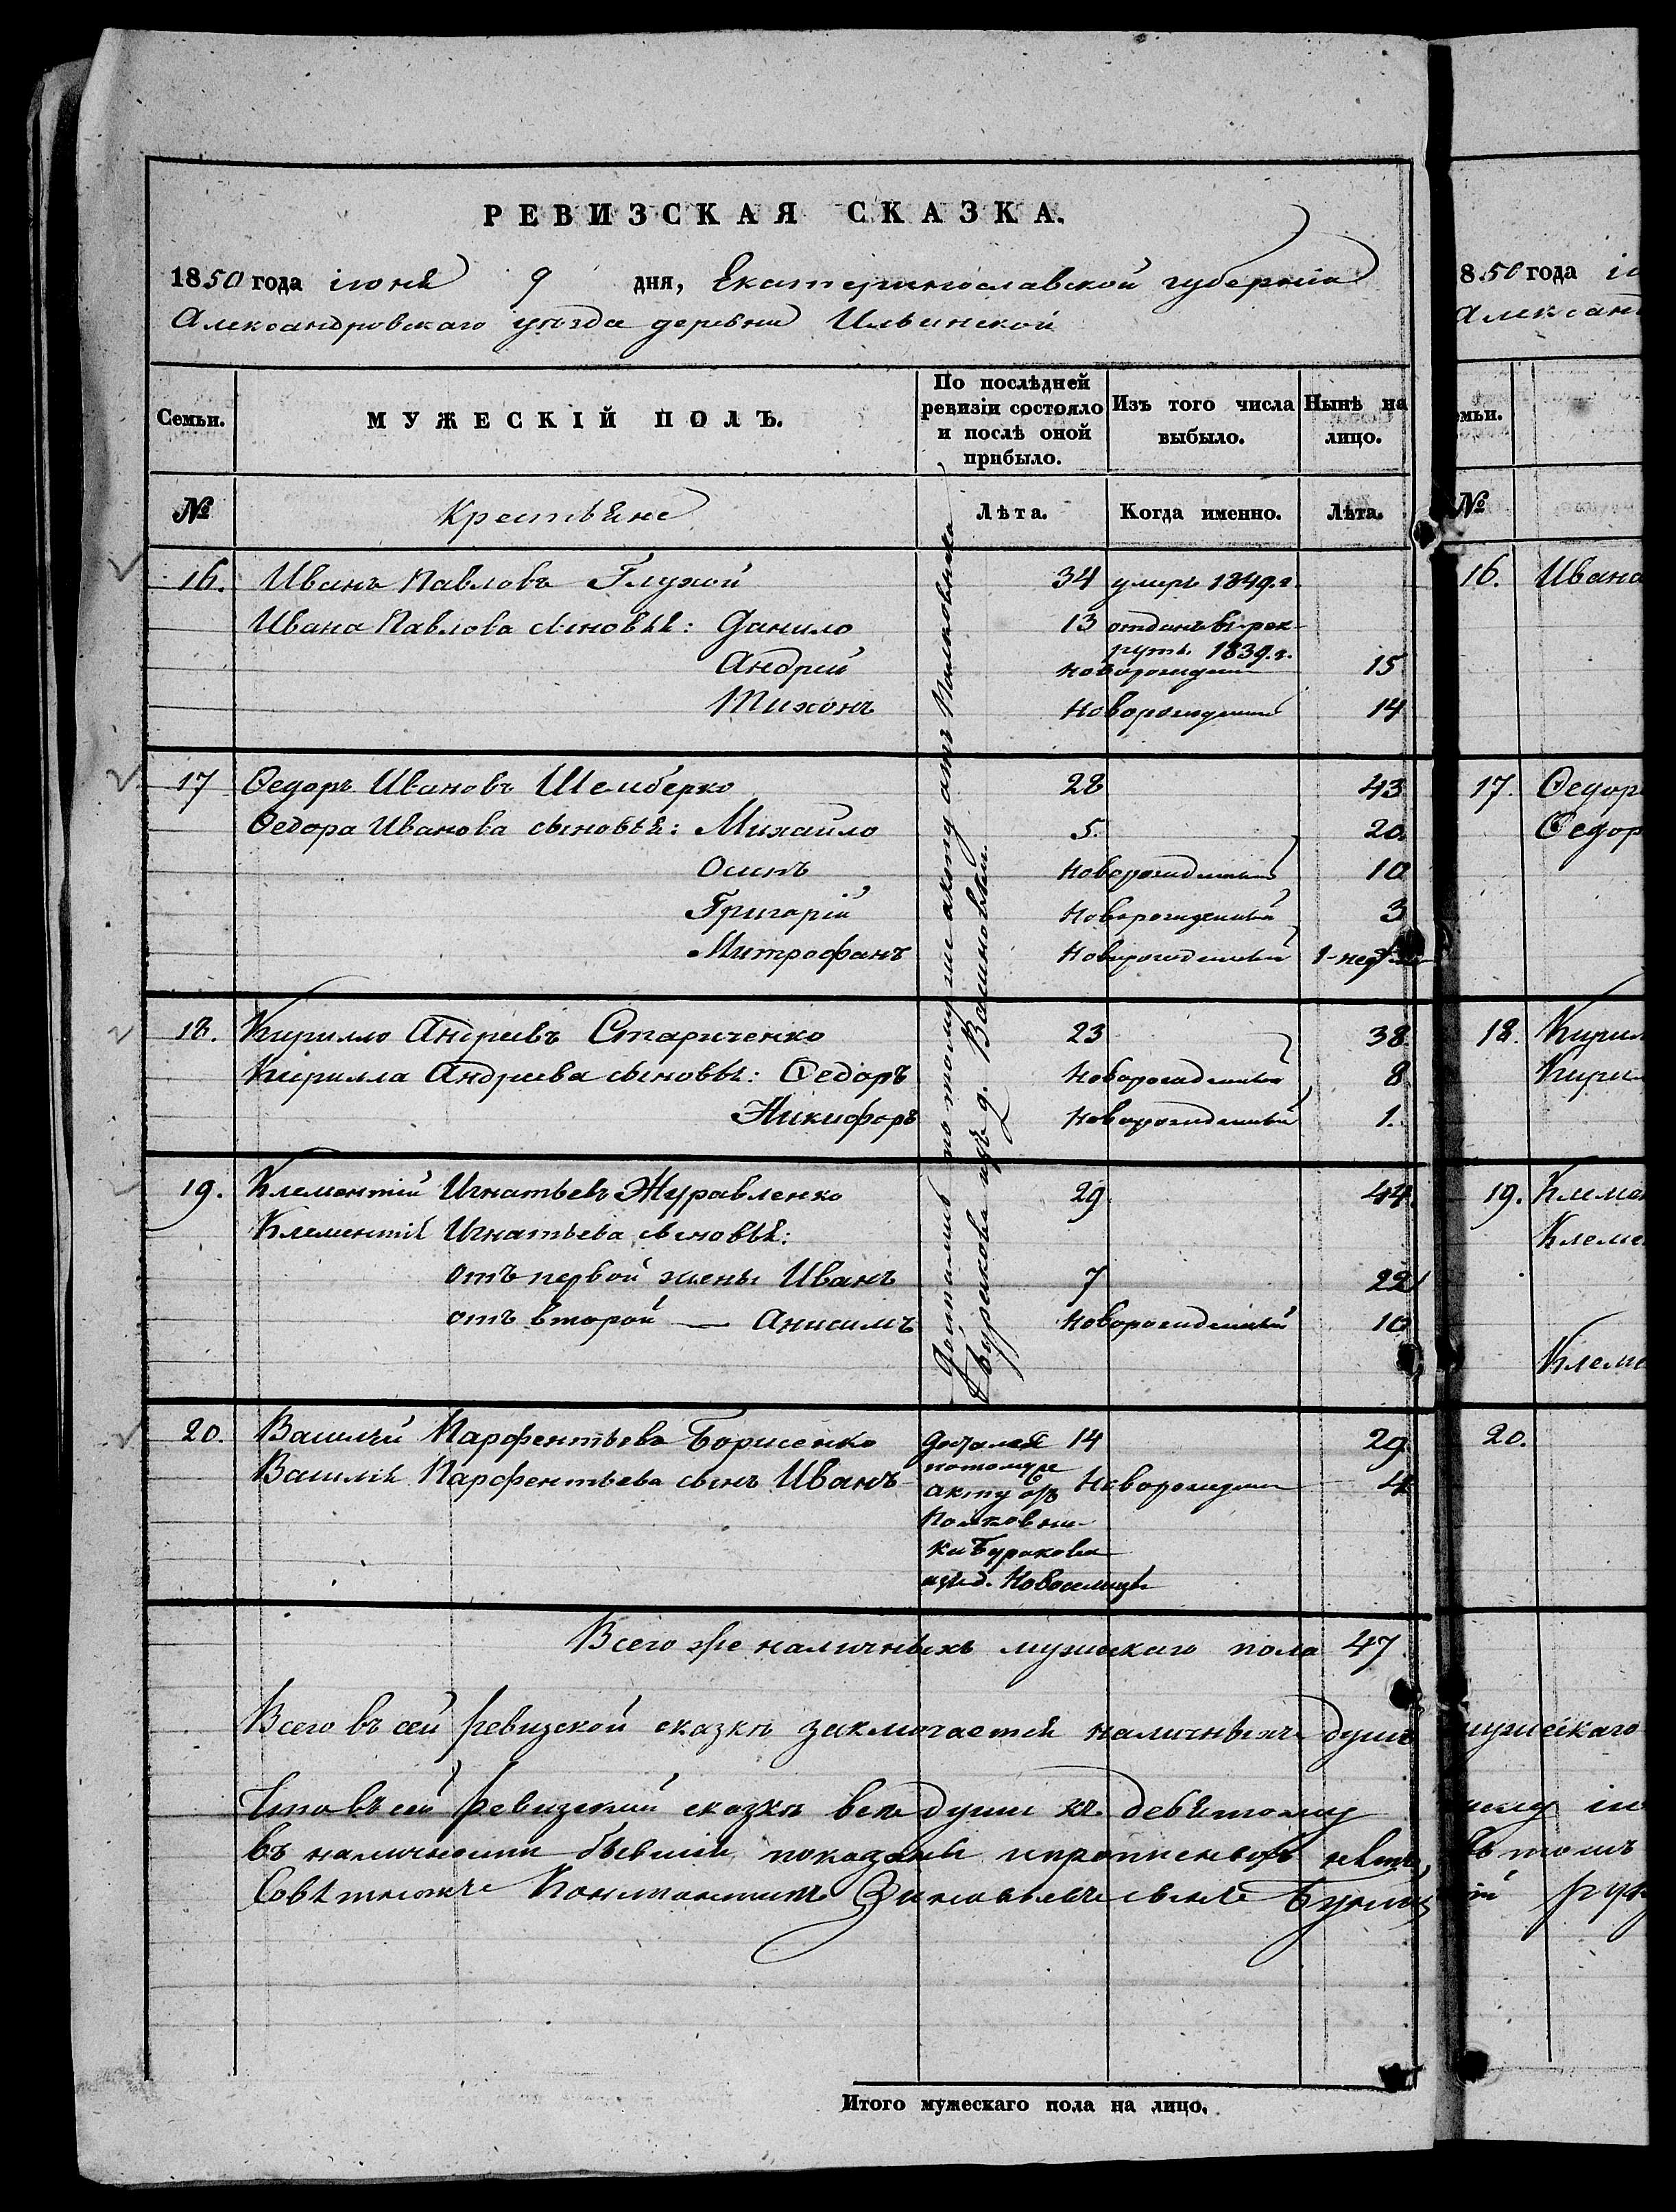 РЕВИЗСКАЯ СКАЗКА.
1850 года іюня 9 дня, Екатеринославской губерніи
Александровскаго уѣзда деревни Ильинской
Семьи. МУЖЕСКІЙ ПОЛЪ. По послѣдней ревизіи состояло и послѣ оной прибыло. Изъ того числа выбыло. Нынѣ на лицо.
№ Крестьяне Лѣта. Когда именно. Лѣта.
16. Иванъ Павловъ Глухой 34 умеръ 1849.г.
Ивана Павлова сыновья: Данило 13 отданъ въ рек-
рутъ 1839.г.
Андрей новорожденный 15
Тихонъ Новорожденный 14
17 Ѳедоръ Ивановъ Шемберко 28 43
Ѳедора Иванова сыновья: Михайло 5. 20
Осипъ Новорожденный 10
Григорій Новорожденный 3
Митрофанъ Новорожденный 1-нед
18. Кирилло Андреевъ Стариченко 23 38.
Кирилла Андреева сыновья: Ѳедоръ Новорожденный 8
Никифоръ Новорожденный 1.
19. Клементій Игнатьевъ Журавленко 29 44.
Клементія Игнатьева сыновья:
отъ первой жены Иванъ 7 22
отъ второй — Анисимъ Новорожденный 10
Достались по тому же акту отъ Полковника
Буракова изъ д.
20. Василий Парфентьевъ Борисенко Достался 14 29
потому же
Василія Парфентьева сынъ Иванъ Новорожден 4
акту отъ
Полковни-
ка Буракова
изъ д. Новоселицы
Всего же наличныхъ мужескаго пола 47
Всего въ сей ревизской сказкѣ заключается наличныхъ душъ
Что въ сей ревизской сказкѣ все души къ девятому
въ наличности бывшія показаны и прописныхъ нетъ,
Итого мужескаго пола на лицо.
850 года
Алексан
мьи.
№
16. Ивана
17. Ѳедор
Ѳедор
18. Кирил
Кирил
19. Клеме
Клеме
Клеме
20.
мужескаго
въ томъ